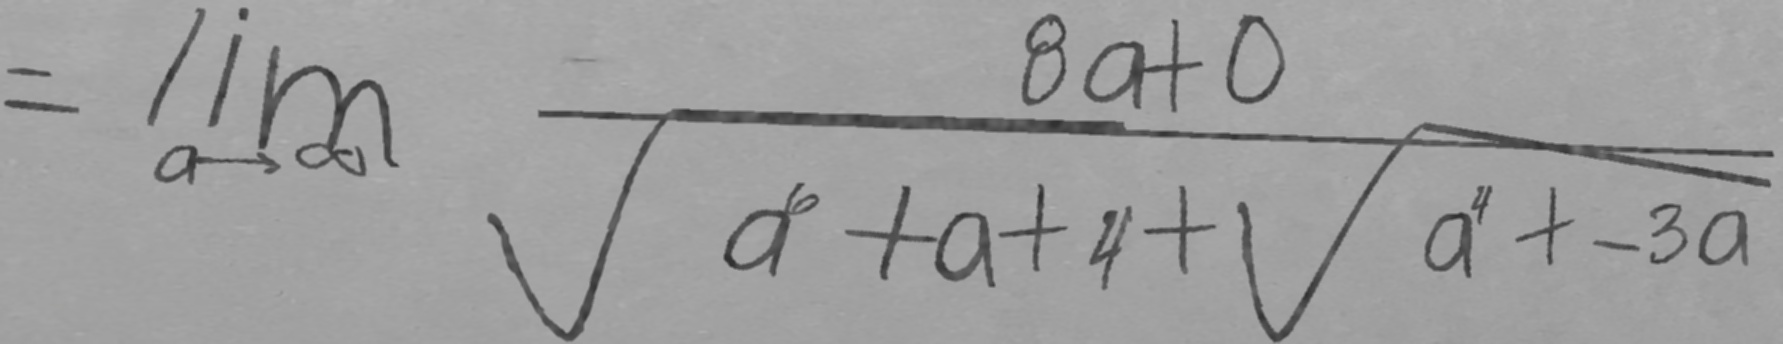 = lim_{a→∞} \frac{8a+0}{\sqrt{a^6+a+4}+\sqrt{a^4+-3a}}